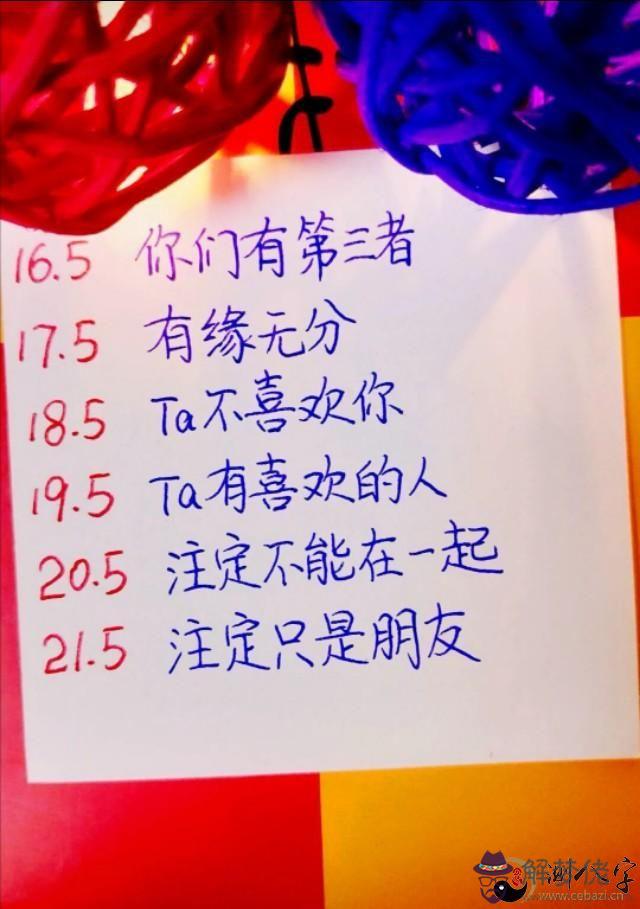 16.5 你们有第三者
17.5 有缘无分
18.5 Ta不喜欢你
19.5 Ta有喜欢的人
20.5 注定不能在一起
21.5 注定只是朋友
解梦佬
www.cebazi.cn